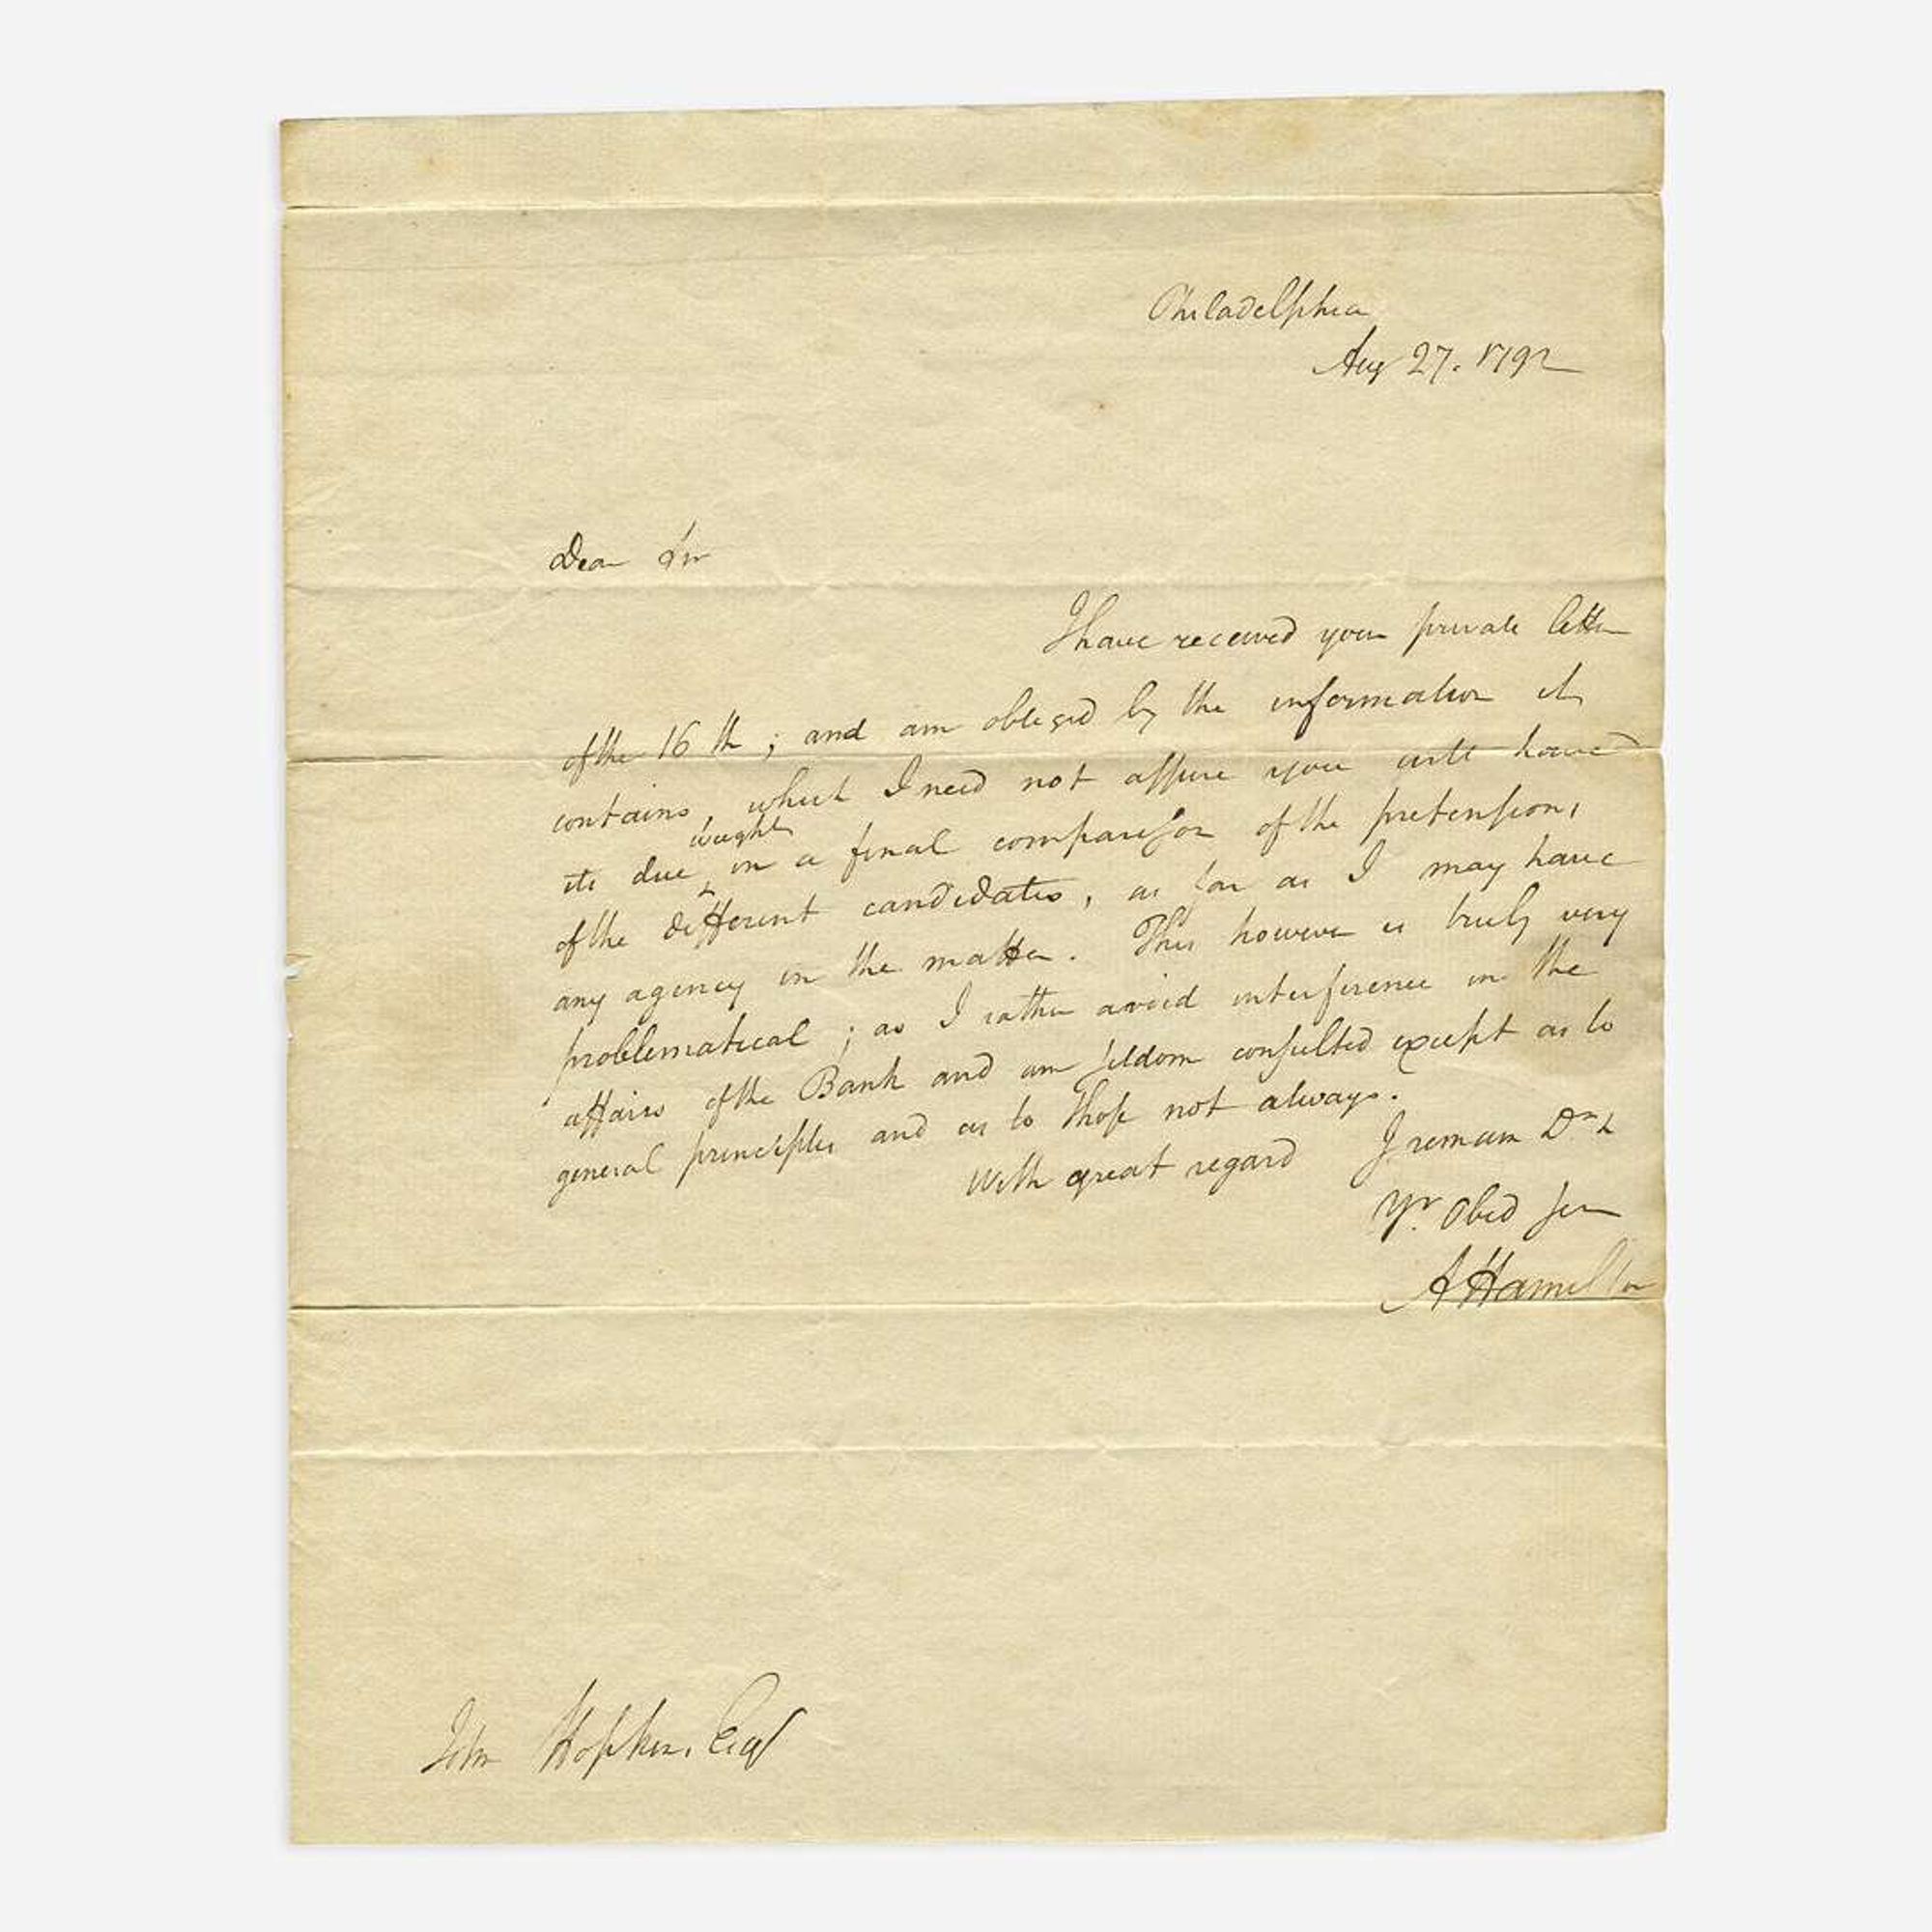 Philadelphia
Aug 27. 1792
Dear Sir
I have received your private letter
of the 16th; and am obliged by the information it
contains, which I need not assure you will have
its due weight in a final comparison of the pretensions
of the different candidates, as far as I may have
any agency in the matter. This however is truly very
problematical; as I rather avoid interference in the
affairs of the Bank and am seldom consulted except as to
general principles and as to those not always.
With great regard I remain Dr
Yr. Obed Ser
A Hamilton
John Hopkins Esq